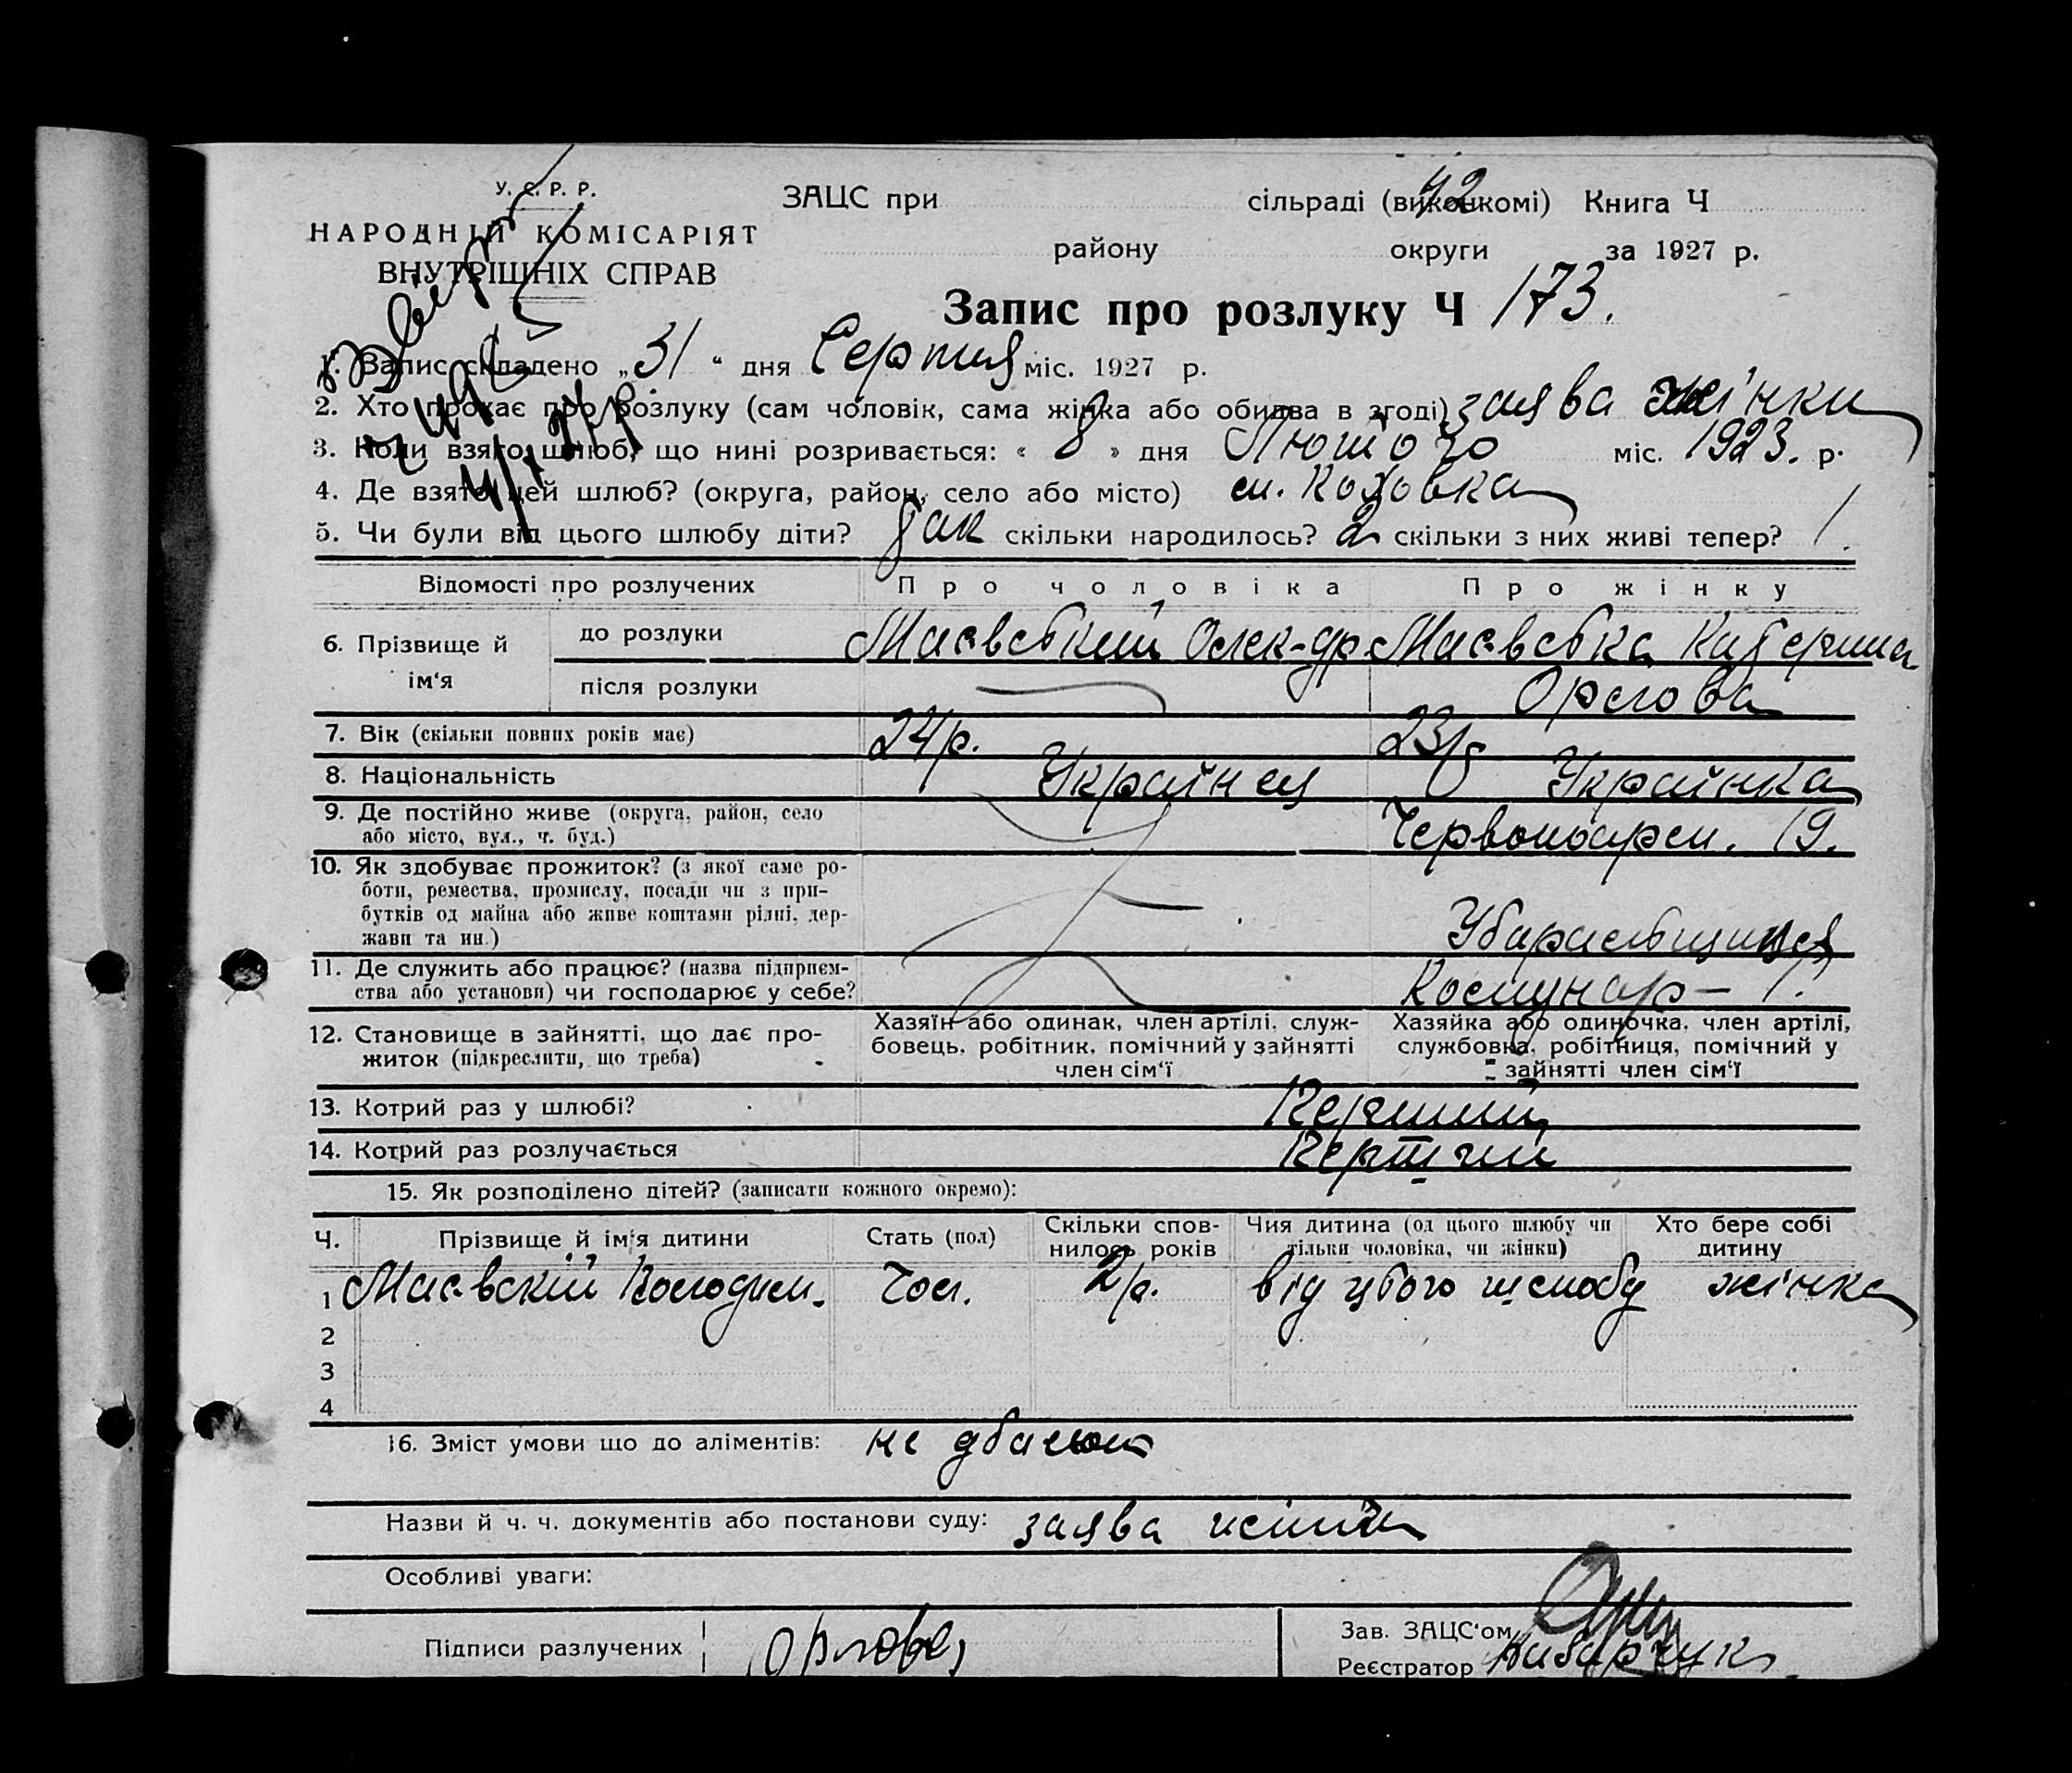 У. С. Р. Р.
НАРОДНІЙ КОМІСАРІЯТ
ВНУТРІШНІХ СПРАВ
ЗАЦС при сільраді (виконкомі) Книга Ч
42
району округи за 1927 р.
Запис про розлуку Ч 173.
1. Запис складено „31“ дня Серпня міс. 1927 р.
2. Хто прохає про розлуку (сам чоловік, сама жінка або обидва в згоді) заява жінки
3. Коли взято шлюб, що нині розривається: « 8 » дня Лютого міс. 1923. р.
4. Де взято цей шлюб? (округа, район, село або місто) м. Каховка
5. Чи були від цього шлюбу діти? так скільки народилось? 2 скільки з них живі тепер? 1.
Відомості про розлучених Про чоловіка Про жінку
6. Прізвище й ім‘я до розлуки Маєвський Олек-др Маєвська Катерина
після розлуки Орлова
7. Вік (скільки повних років має) 24 р. 23 р
8. Національність Українец Українка
9. Де постійно живе (округа, район, село
або місто, вул., ч. буд.) Червоноарм. 19.
10. Як здобуває прожиток? (з якої саме ро-
боти, ремества, промислу, посади чи з при-
бутків од майна або живе коштами рідні, дер-
жави та ин.)
11. Де служить або працює? (назва підприєм-
ства або установи) чи господарює у себе? Комунар – 1.
12. Становище в зайнятті, що дає про-
житок (підкреслити, що треба)
Хазяїн або одинак, член артілі, служ-
бовець, робітник, помічний у зайнятті
член сім‘ї
Хазяйка або одиночка, член артілі,
службовка, робітниця, помічний у
зайнятті член сім‘ї
13. Котрий раз у шлюбі? Перший
14. Котрий раз розлучається Перший
15. Як розподілено дітей? (записати кожного окремо):
Ч. Прізвище й ім‘я дитини Стать (пол) Скільки спов-
нилось років Чия дитина (од цього шлюбу чи
тільки чоловіка, чи жінки) Хто бере собі
дитину
1 Маєвскій Володим. Чол. 2 р. від цього шлюбу жінка
2
3
4
16. Зміст умови що до аліментів: не дбають
Назви й ч. ч. документів або постанови суду: заява
Особливі уваги:
Підписи разлучених Орлова
Зав. ЗАЦС‘ом
Реєстратор